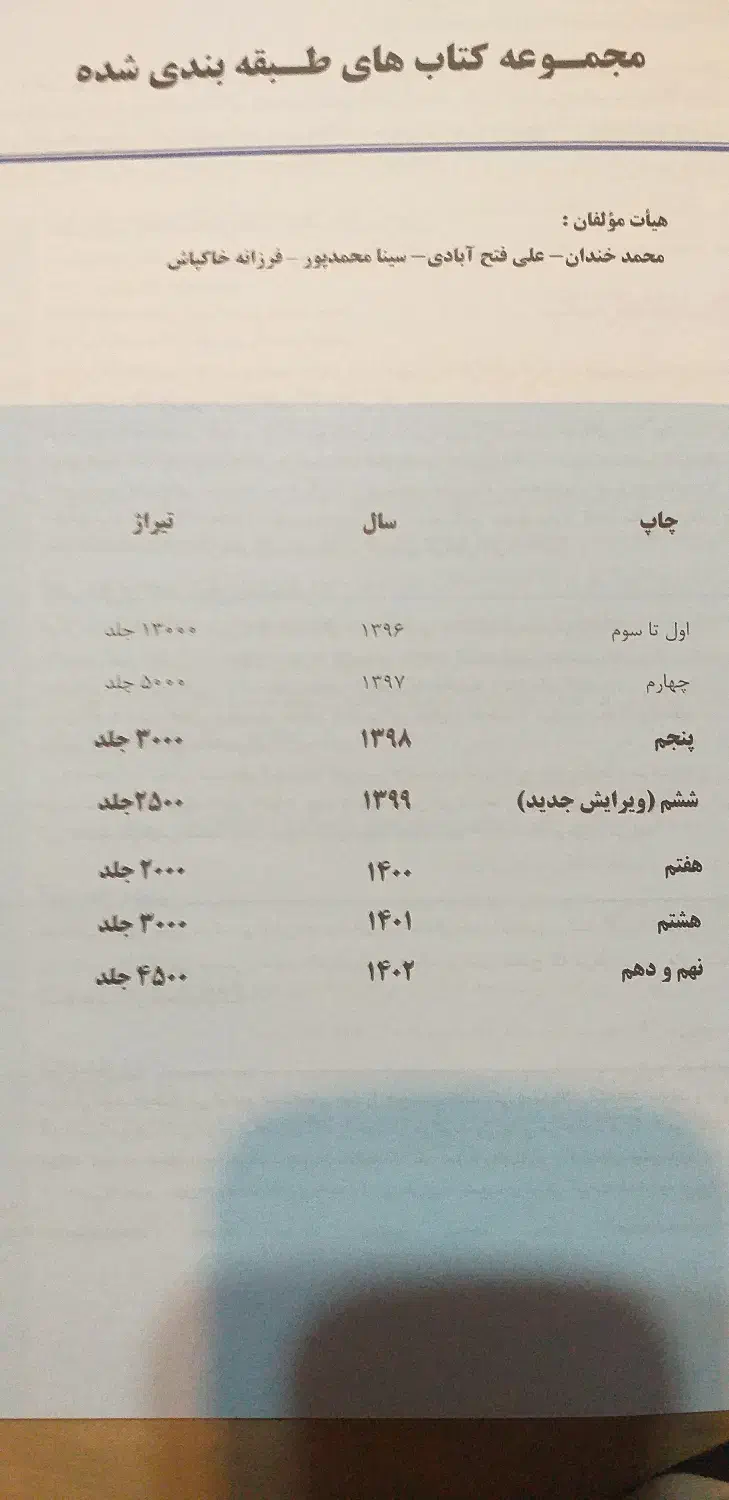 مجمـــوعه کتاب های طـــبقه بندی شده
هیأت مؤلفان :
محمد خندان – علی فتح آبادی – سینا محمدپور – فرزانه خاکپاش
چاپ سال تیراژ
اول تا سوم ۱۳۹۶ ۱۳۰۰۰ جلد
چهارم ۱۳۹۷ ۵۰۰۰ جلد
پنجم ۱۳۹۸ ۳۰۰۰ جلد
ششم (ویرایش جدید) ۱۳۹۹ ۲۵۰۰جلد
هفتم ۱۴۰۰ ۲۰۰۰ جلد
هشتم ۱۴۰۱ ۳۰۰۰ جلد
نهم و دهم ۱۴۰۲ ۴۵۰۰ جلد